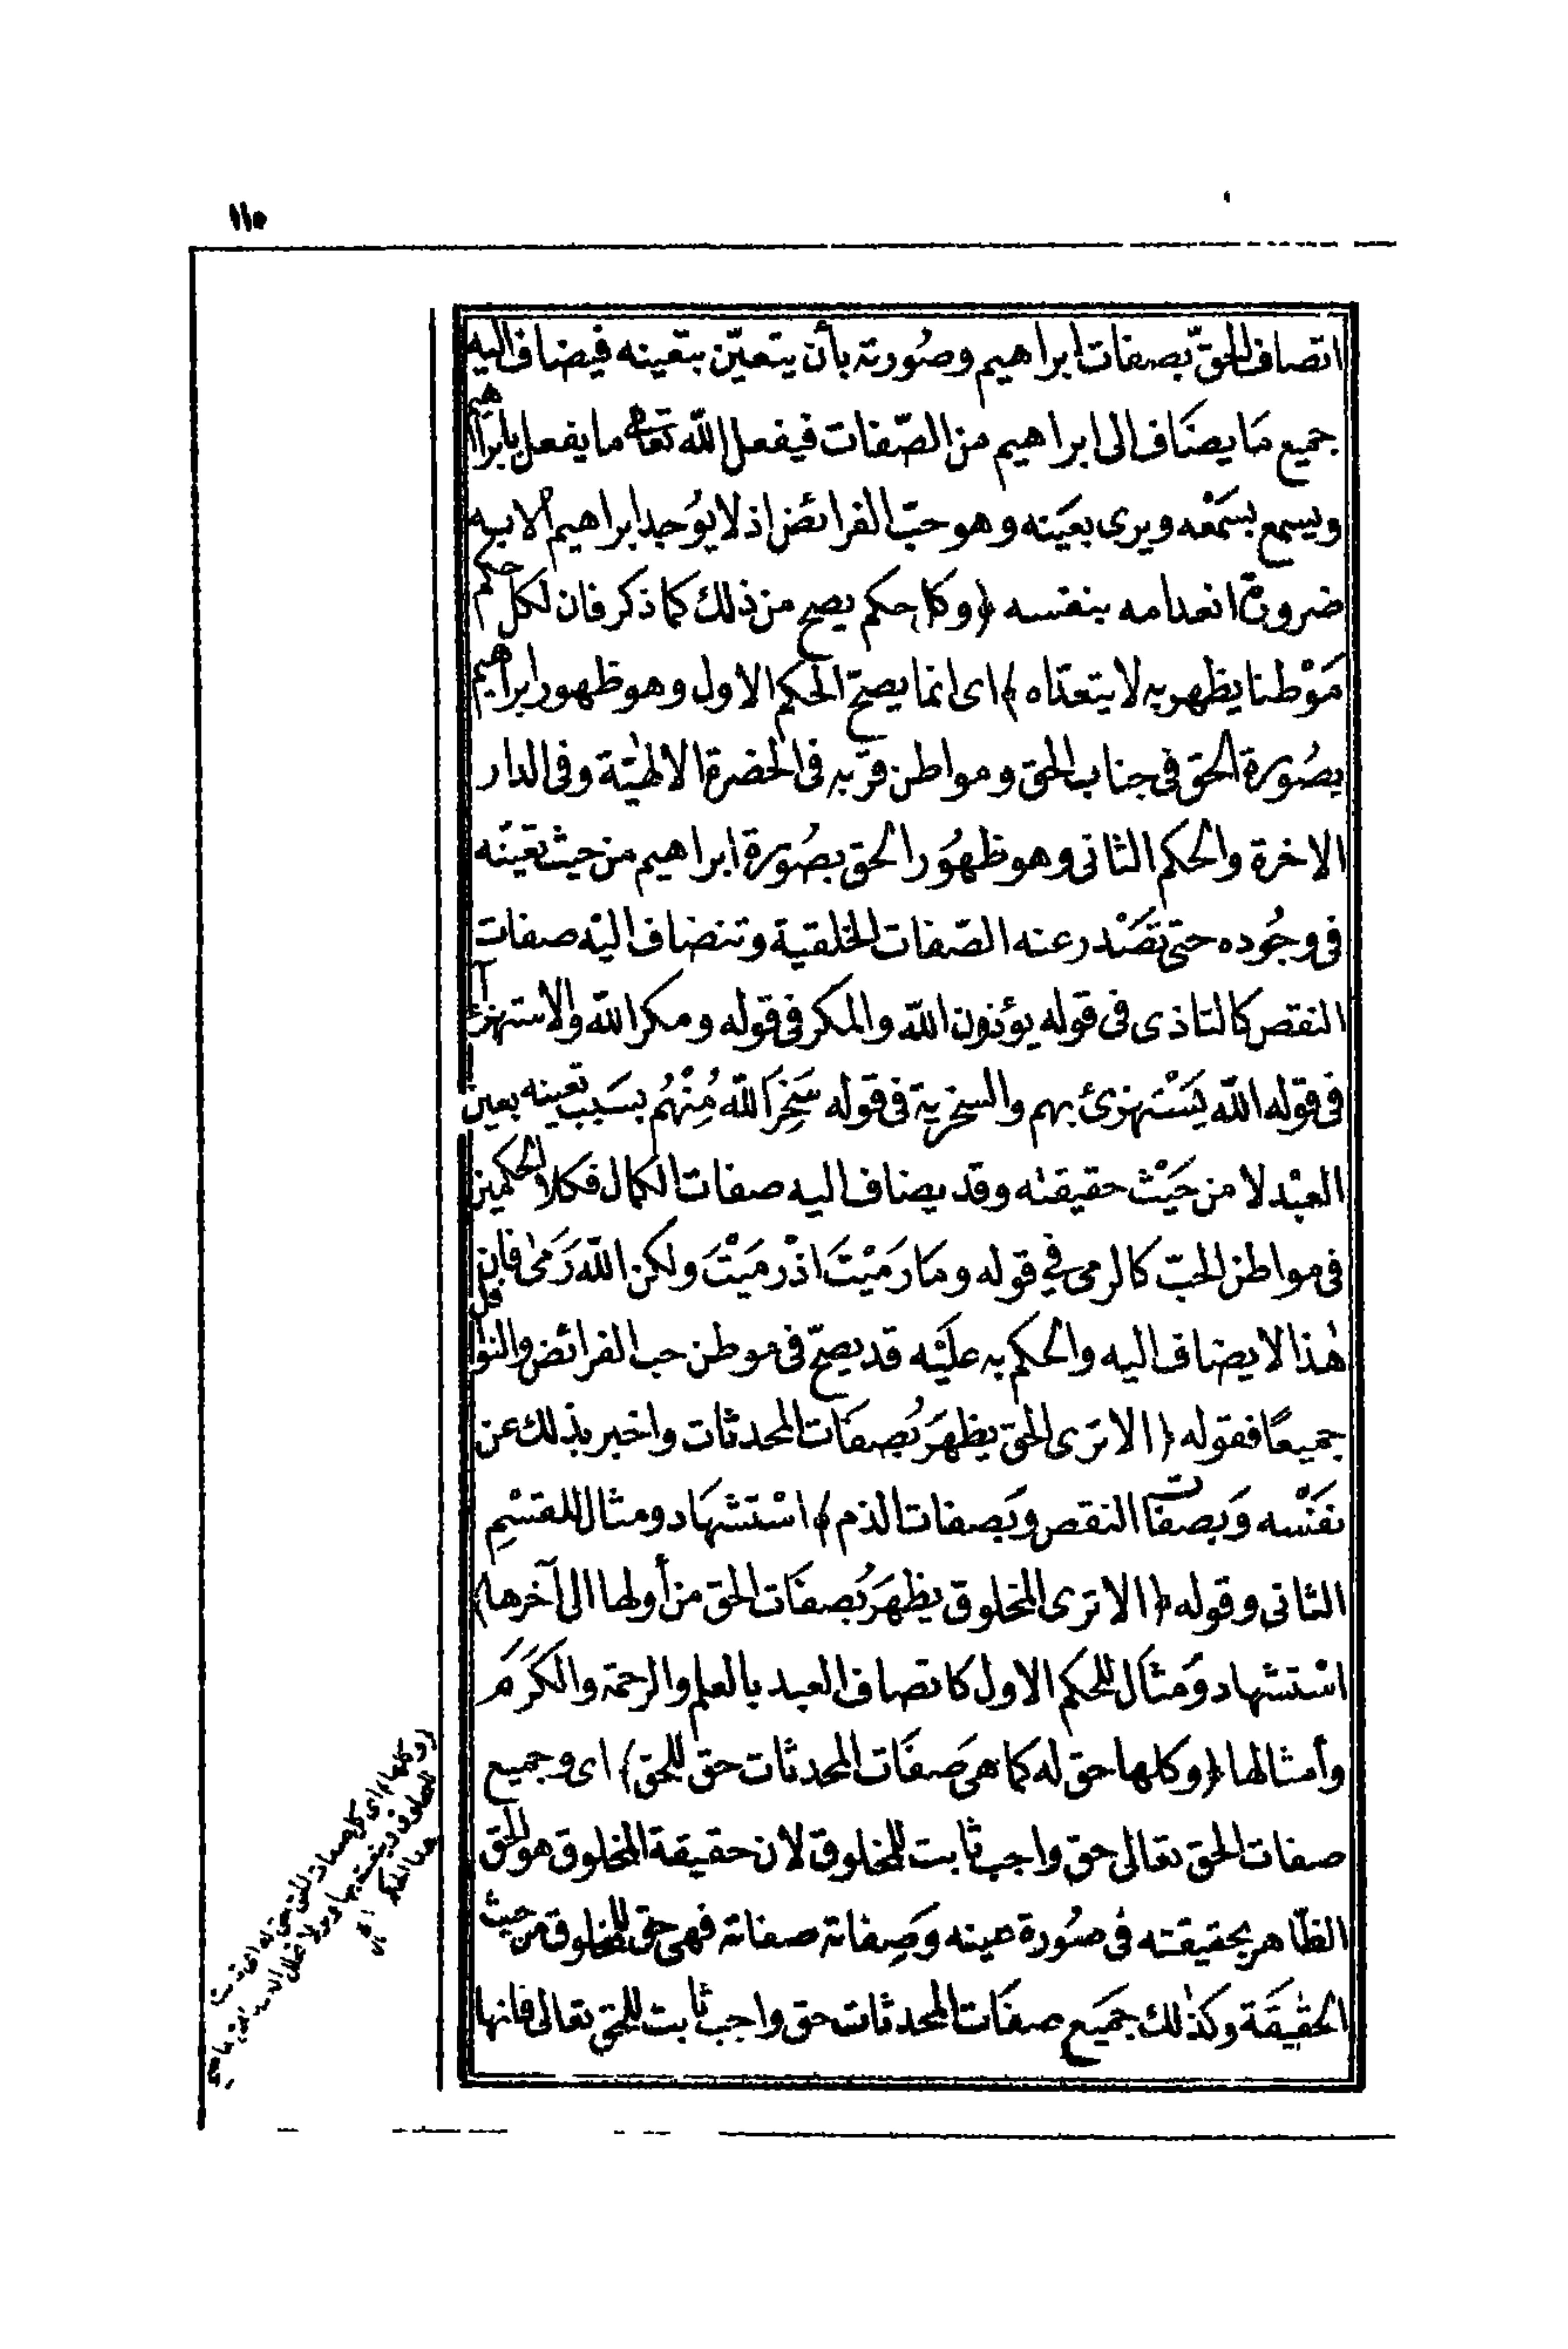 ١١٥
اتصاف الحقّ بصفات ابراهيم وصُورته بأن يتعيّن بتعّينه فيضاف اليه
جميع مَا يضَاف الى ابراهيم من الصّفات فيفعل الله تعالى ما يفعل بابراهيم
ويسمع بسَمْعه ويرى بعَينه وهو حبّ الفرائض اذ لا يوُجد ابراهيم الا به
ضرورة انعدامه بنفسه ﴿وكل حكم يصح من ذلك كما ذكر فان لكل حكم
مَوْطنا يظهر به لا يتعدّاه﴾ اى انما يصحّ الحكم الاول وهو ظهور ابراهيم
بصُورة الحق فى جناب الحق ومواطن قرّبه فى الحضرة الالهٰيّة وفى الدار
الاخرة والحكم الثانى وهو ظهوُر الحق بصُورة ابراهيم من حيث تعّينه
فى وجُوده حتى تصَدر عنه الصّفات الخلقية وتنضاف اليْه صفات
النقص كالتاذى فى قوله يؤذون الله والمكر فى قوله ومكر الله والاستهزآء
فى قوله الله يَسْتهزئ بهم والسخرية فى قوله سَخِرَ الله مُنْهُم بسَبب تعينه بعين
العبْد لا من حَيْث حقيقته وقد يضاف اليه صفات الكمال فكلا الحكمين
فى مواطن الحبّ كالرمى فى قوله ومَا رَمَيْتَ اذْ رمَيْتَ ولكن الله رَمىٰ فان
هٰذا لا يضاف اليه والحكم به علَيْه قد يصحّ فى موطن حب الفرائض والنوافل
جميعًا فقوله ﴿الا ترى الحق يظهَر بُصفَات المحدثات واخبر بذلك عن
نفَسْه وَبصفات النقص وَبصفات الذم﴾ اسْتشهَاد ومثال للقسْمِ
الثانى وقوله ﴿الا ترى المخلوق يظهَر بُصفَات الحق من أولها الى آخرها﴾
اسْتشهاد وَمثَال للحكم الاول كاتصاف العبد بالعلم والرحمة والكَرَم
وأمثالها ﴿وكلها حق له كما هى صَفَات المحدثات حق للحق﴾ اى وجميع
صفات الحق تعالى حق واجب ثابت للمخلوق لان حقيقة المخلوق هو الحق
الظّاهر بحقيقته فى صُورة عينه وَصِفاته صفاته فهى حق للمخلوق من حيث
الحقيقَة وكذٰلك جمَيع صفَات المحدثات حق واجب ثابت للحق تعالى فانها